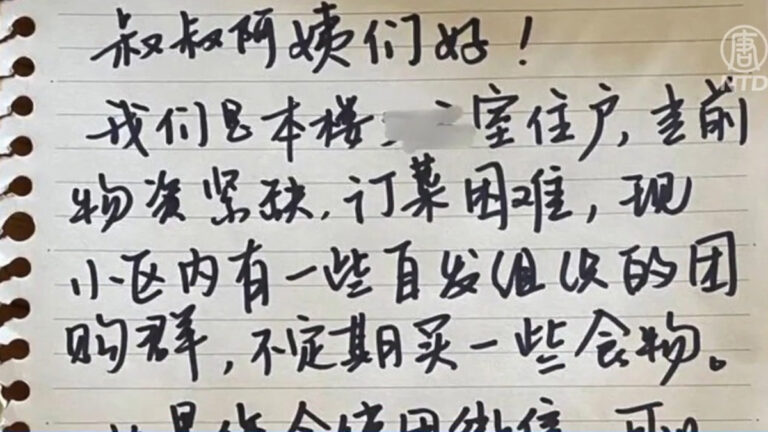 叔叔阿姨们好！
唐
NTD
我们是本楼 室住户，当前
物资紧缺，订菜困难，现
小区内有一些自发组织的团
购群，不定期买一些食物。
如果您会使用微信，可以